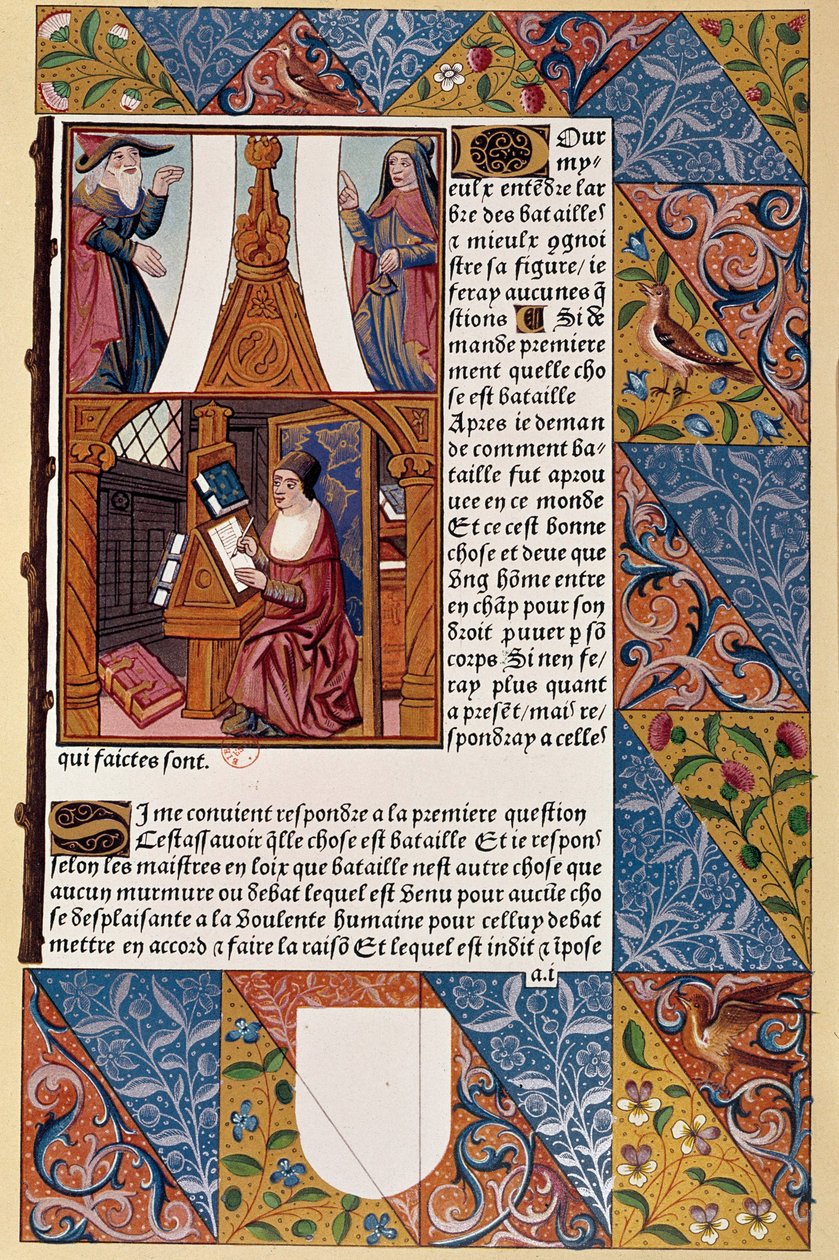 Pour
my-
eulx entēdre lar
bre des batailles
⁊ mieulx ꝯgnoi
stre sa figure/ ie
feray aucunes q̄
stions ¶ Si de
mande premiere
ment quelle cho
se est bataille
Apres ie deman
de comment ba-
taille fut aprou
uee en ce monde
Et ce cest bonne
chose et deue que
vng hōme entre
en chāp pour son
droit ꝓuuer ꝑ sō
corps Si nen fe/
ray plus quant
a presēt/ mais re/
spondray a celles
qui faictes sont.
SI me conuient respondre a la premiere question
Cestassauoir q̄lle chose est bataille Et ie respons
selon les maistres en loix que bataille nest autre chose que
aucun murmure ou debat lequel est venu pour aucūe cho
se desplaisante a la voulente humaine pour celluy debat
mettre en accord ⁊ faire la raisō Et lequel est indit ⁊ īpose
a.i